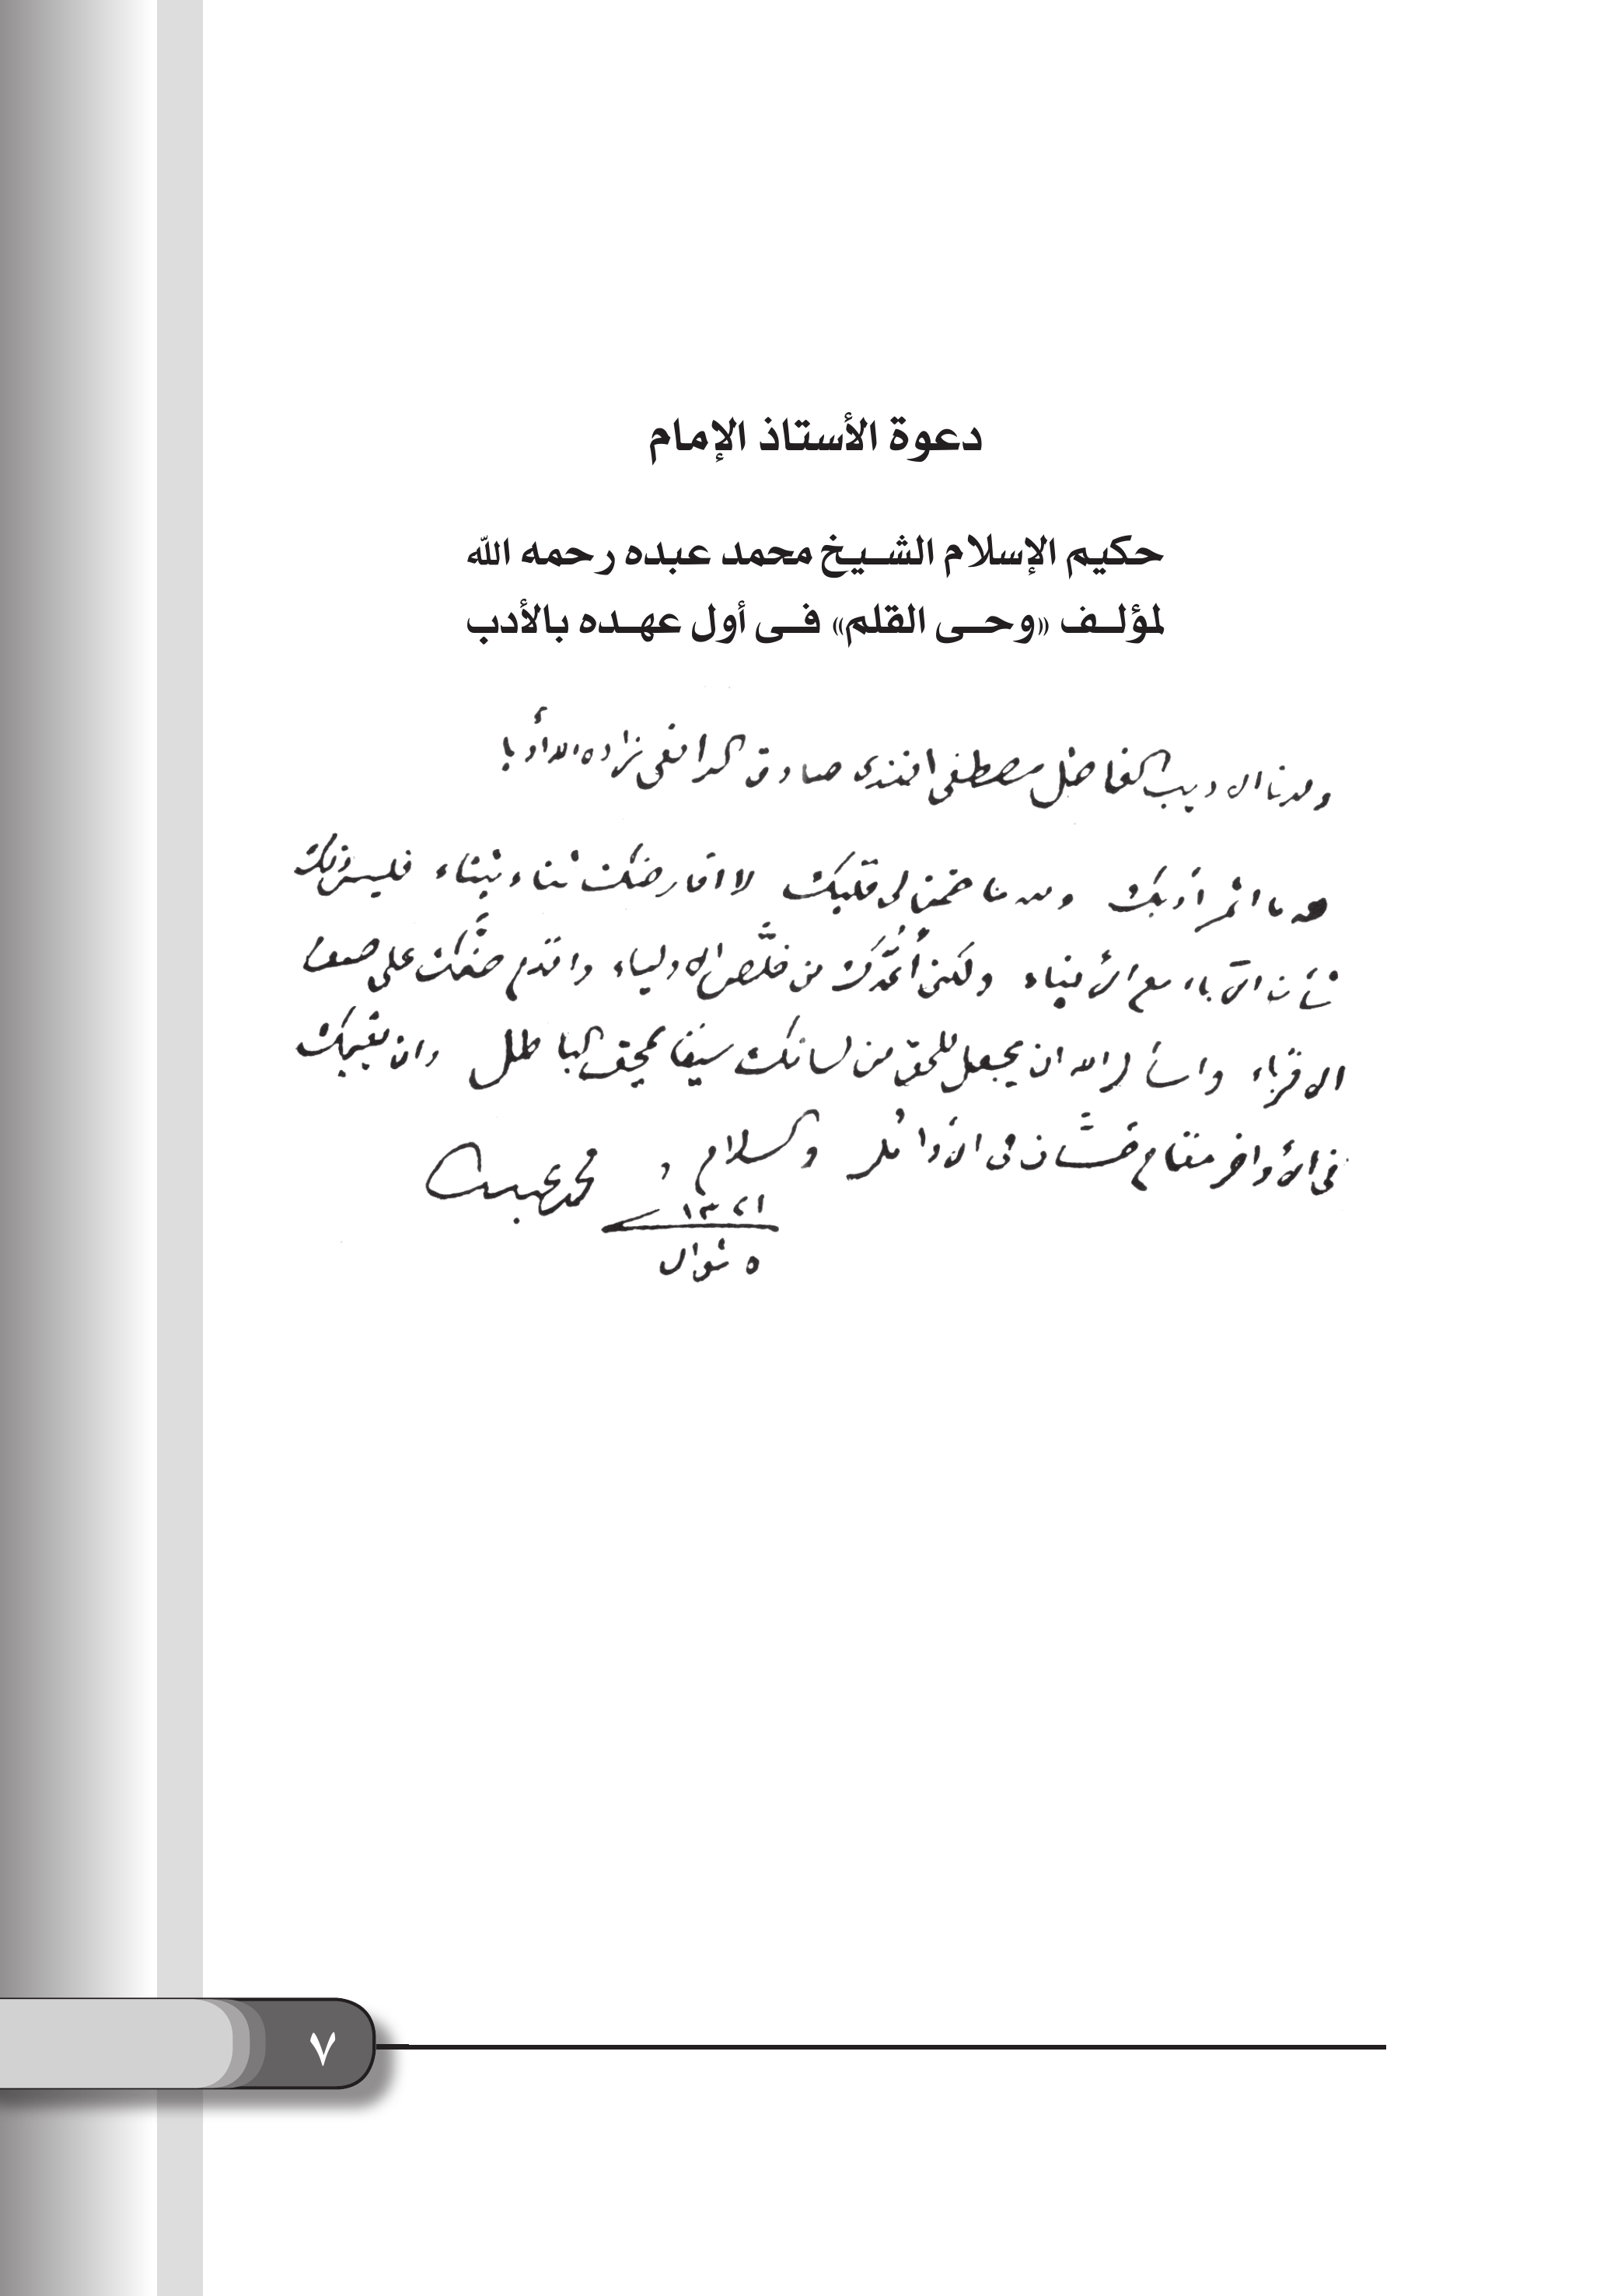 دعوة الأستاذ الإمام
حكيم الإسلام الشيخ محمد عبده رحمه الله
لمؤلف «وحى القلم» فى أول عهده بالأدب
ولدنا الاديب الفاضل مصطفى افندى صادق الرافعى زاده الله أدبا
لله ما اثمر أدبك ولله ما ضمن لى قلبك لا اقارضك ثناء بثناء فليس ذلك
شأن الآباء مع الأبناء ولكنى أعدّك من خلّص الاولياء واقدم صفك على صف
الاقرباء واسأل الله ان يجعل للحق من لسانك سيفا يمحق الباطل وان يقيمك
فى الأواخر مقام حسّان فى الأوائل والسلام
٥ شوال ١٣٢١
محمد عبده
٧